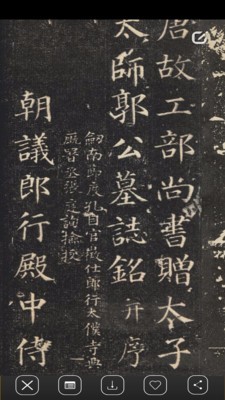 唐故工部尚書贈太子
太師郭公墓誌銘 并序
劍南節度孔目官徵仕郎行太僕寺典
廄署丞張庭詢檢校
朝議郎行殿中侍